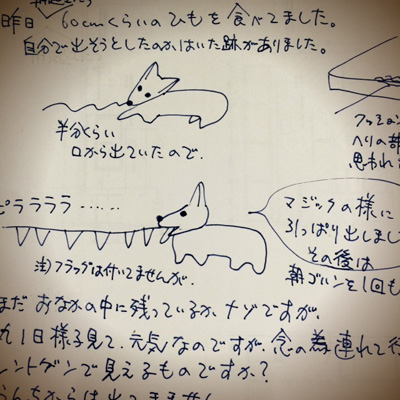 昨日 60cmくらいのひもを食べてました。
自分で出そうとしたのかはいた跡がありました。
半分くらい
口から出ていたので.
ヘリの部
思われ
ピララララ……
注)フラッグは付いてませんが.
マジックの様に
引っぱり出しまし
その後は
朝ゴハンを1回も
まだ おなかの中に残っているか ナゾですが、
丸1日様子見て、元気なのですが、念の為連れて行
レントゲンで見えるものですか?
うんちからは出てません